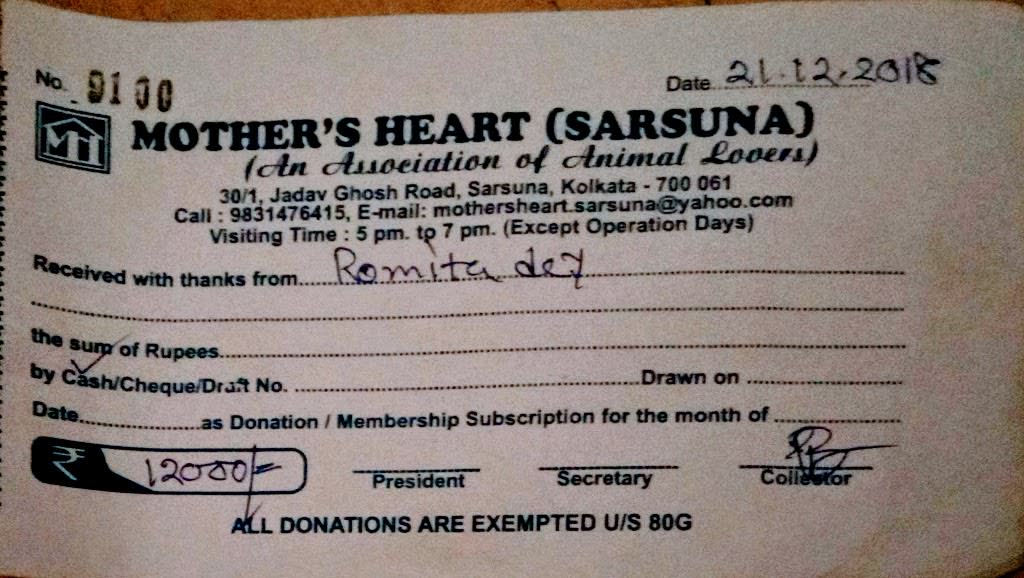 No. 9100
Date 21.12.2018
MOTHER'S HEART (SARSUNA)
(An Association of Animal Lovers)
30/1, Jadav Ghosh Road, Sarsuna, Kolkata - 700 061
Call : 9831476415, E-mail: mothersheart.sarsuna@yahoo.com
Visiting Time : 5 pm. to 7 pm. (Except Operation Days)
Received with thanks from Romita dey
the sum of Rupees
by Cash/Cheque/Draft No. Drawn on
Date as Donation / Membership Subscription for the month of
₹ 12000/-
President Secretary Collector
ALL DONATIONS ARE EXEMPTED U/S 80G